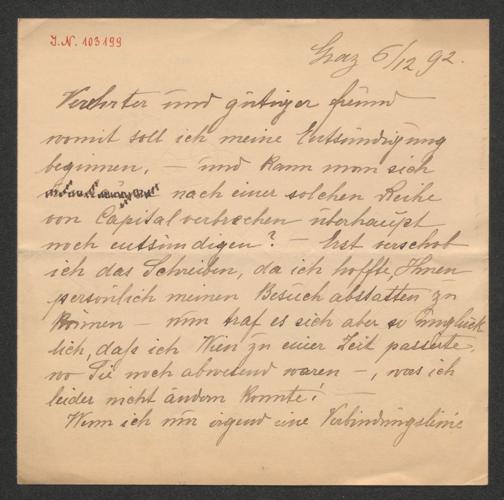 J.N. 103199
Graz 6/12 92.
Verehrter und gütiger Freund
womit soll ich meine Entsündigung
beginnen, – und kann man sich
nach einer solchen Reihe
von Capitalverbrechen überhaupt
noch entsündigen? – Erst verschob
ich das Schreiben, da ich hoffte, Ihnen
persönlich meinen Besuch abstatten zu
können – nun traf es sich aber so unglück
lich, daß ich Wien zu einer Zeit passirte,
wo Sie noch abwesend waren –, was ich
leider nicht ändern konnte! –
Wenn ich nur irgend eine Verbindungslinie